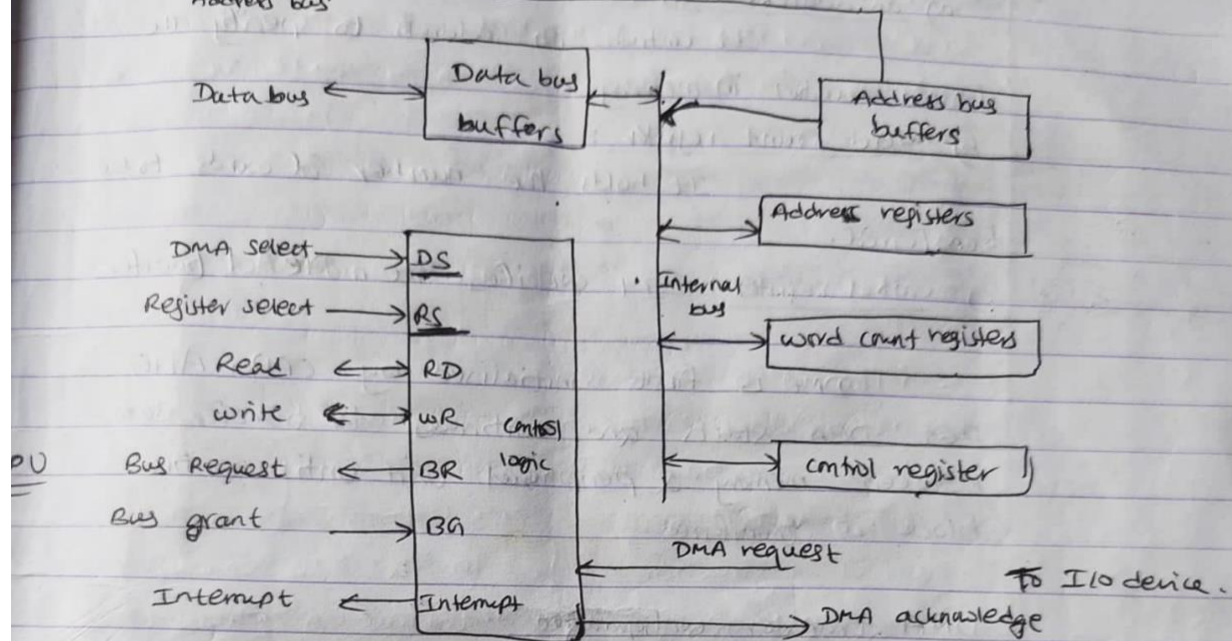 Address bus
Data bus
Data bus
buffers
Address bus
buffers
Address registers
DMA select
DS
Register select
RS
Internal
bus
word count registers
Read
RD
write
WR
control
logic
Bus Request
BR
control register
Bus grant
BG
DMA request
To I/O device.
Interrupt
Interrupt
DMA acknowledge